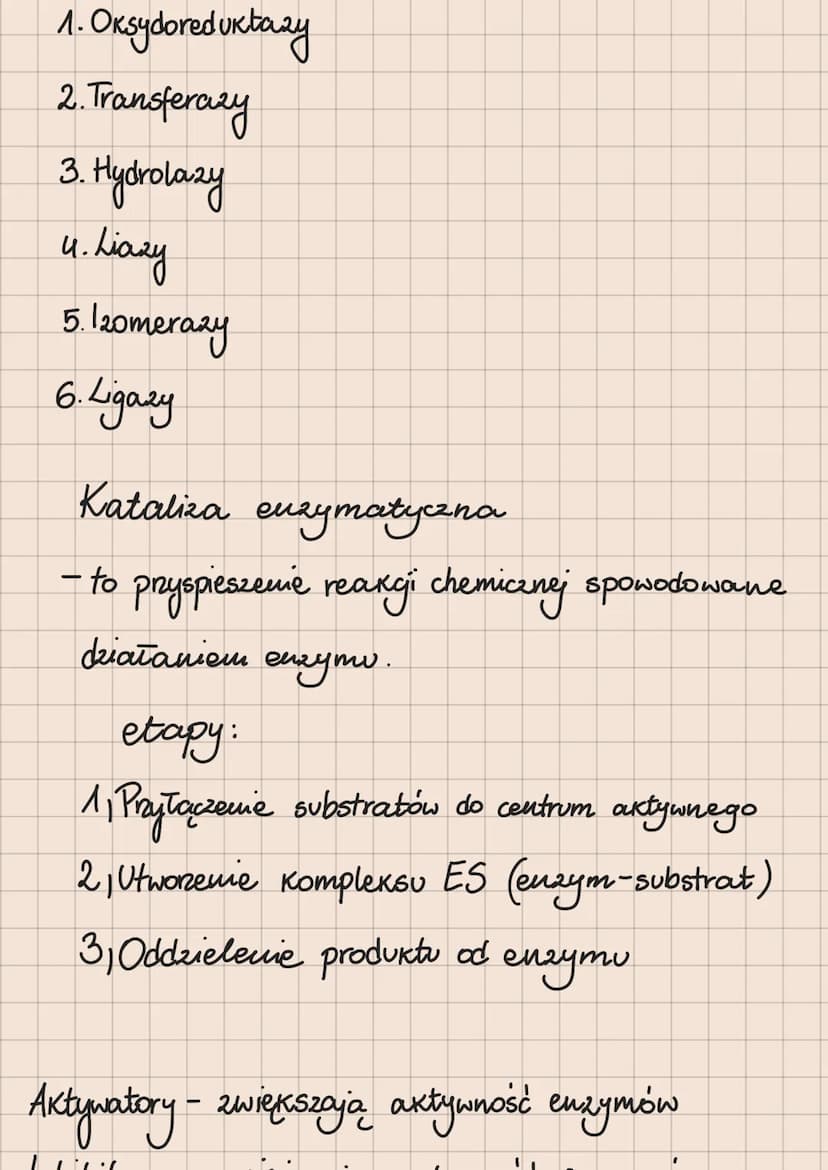 1. Oksydoreduktazy
2. Transferazy
3. Hydrolazy
4. Liazy
5. Izomerazy
6. Ligazy
Kataliza enzymatyczna
- to przyspieszenie reakcji chemicznej spowodowane
działaniem enzymu.
etapy:
1) Przyłączenie substratów do centrum aktywnego
2) Utworzenie kompleksu ES (enzym-substrat)
3) Oddzielenie produktu od enzymu
Aktywatory - zwiększają aktywność enzymów